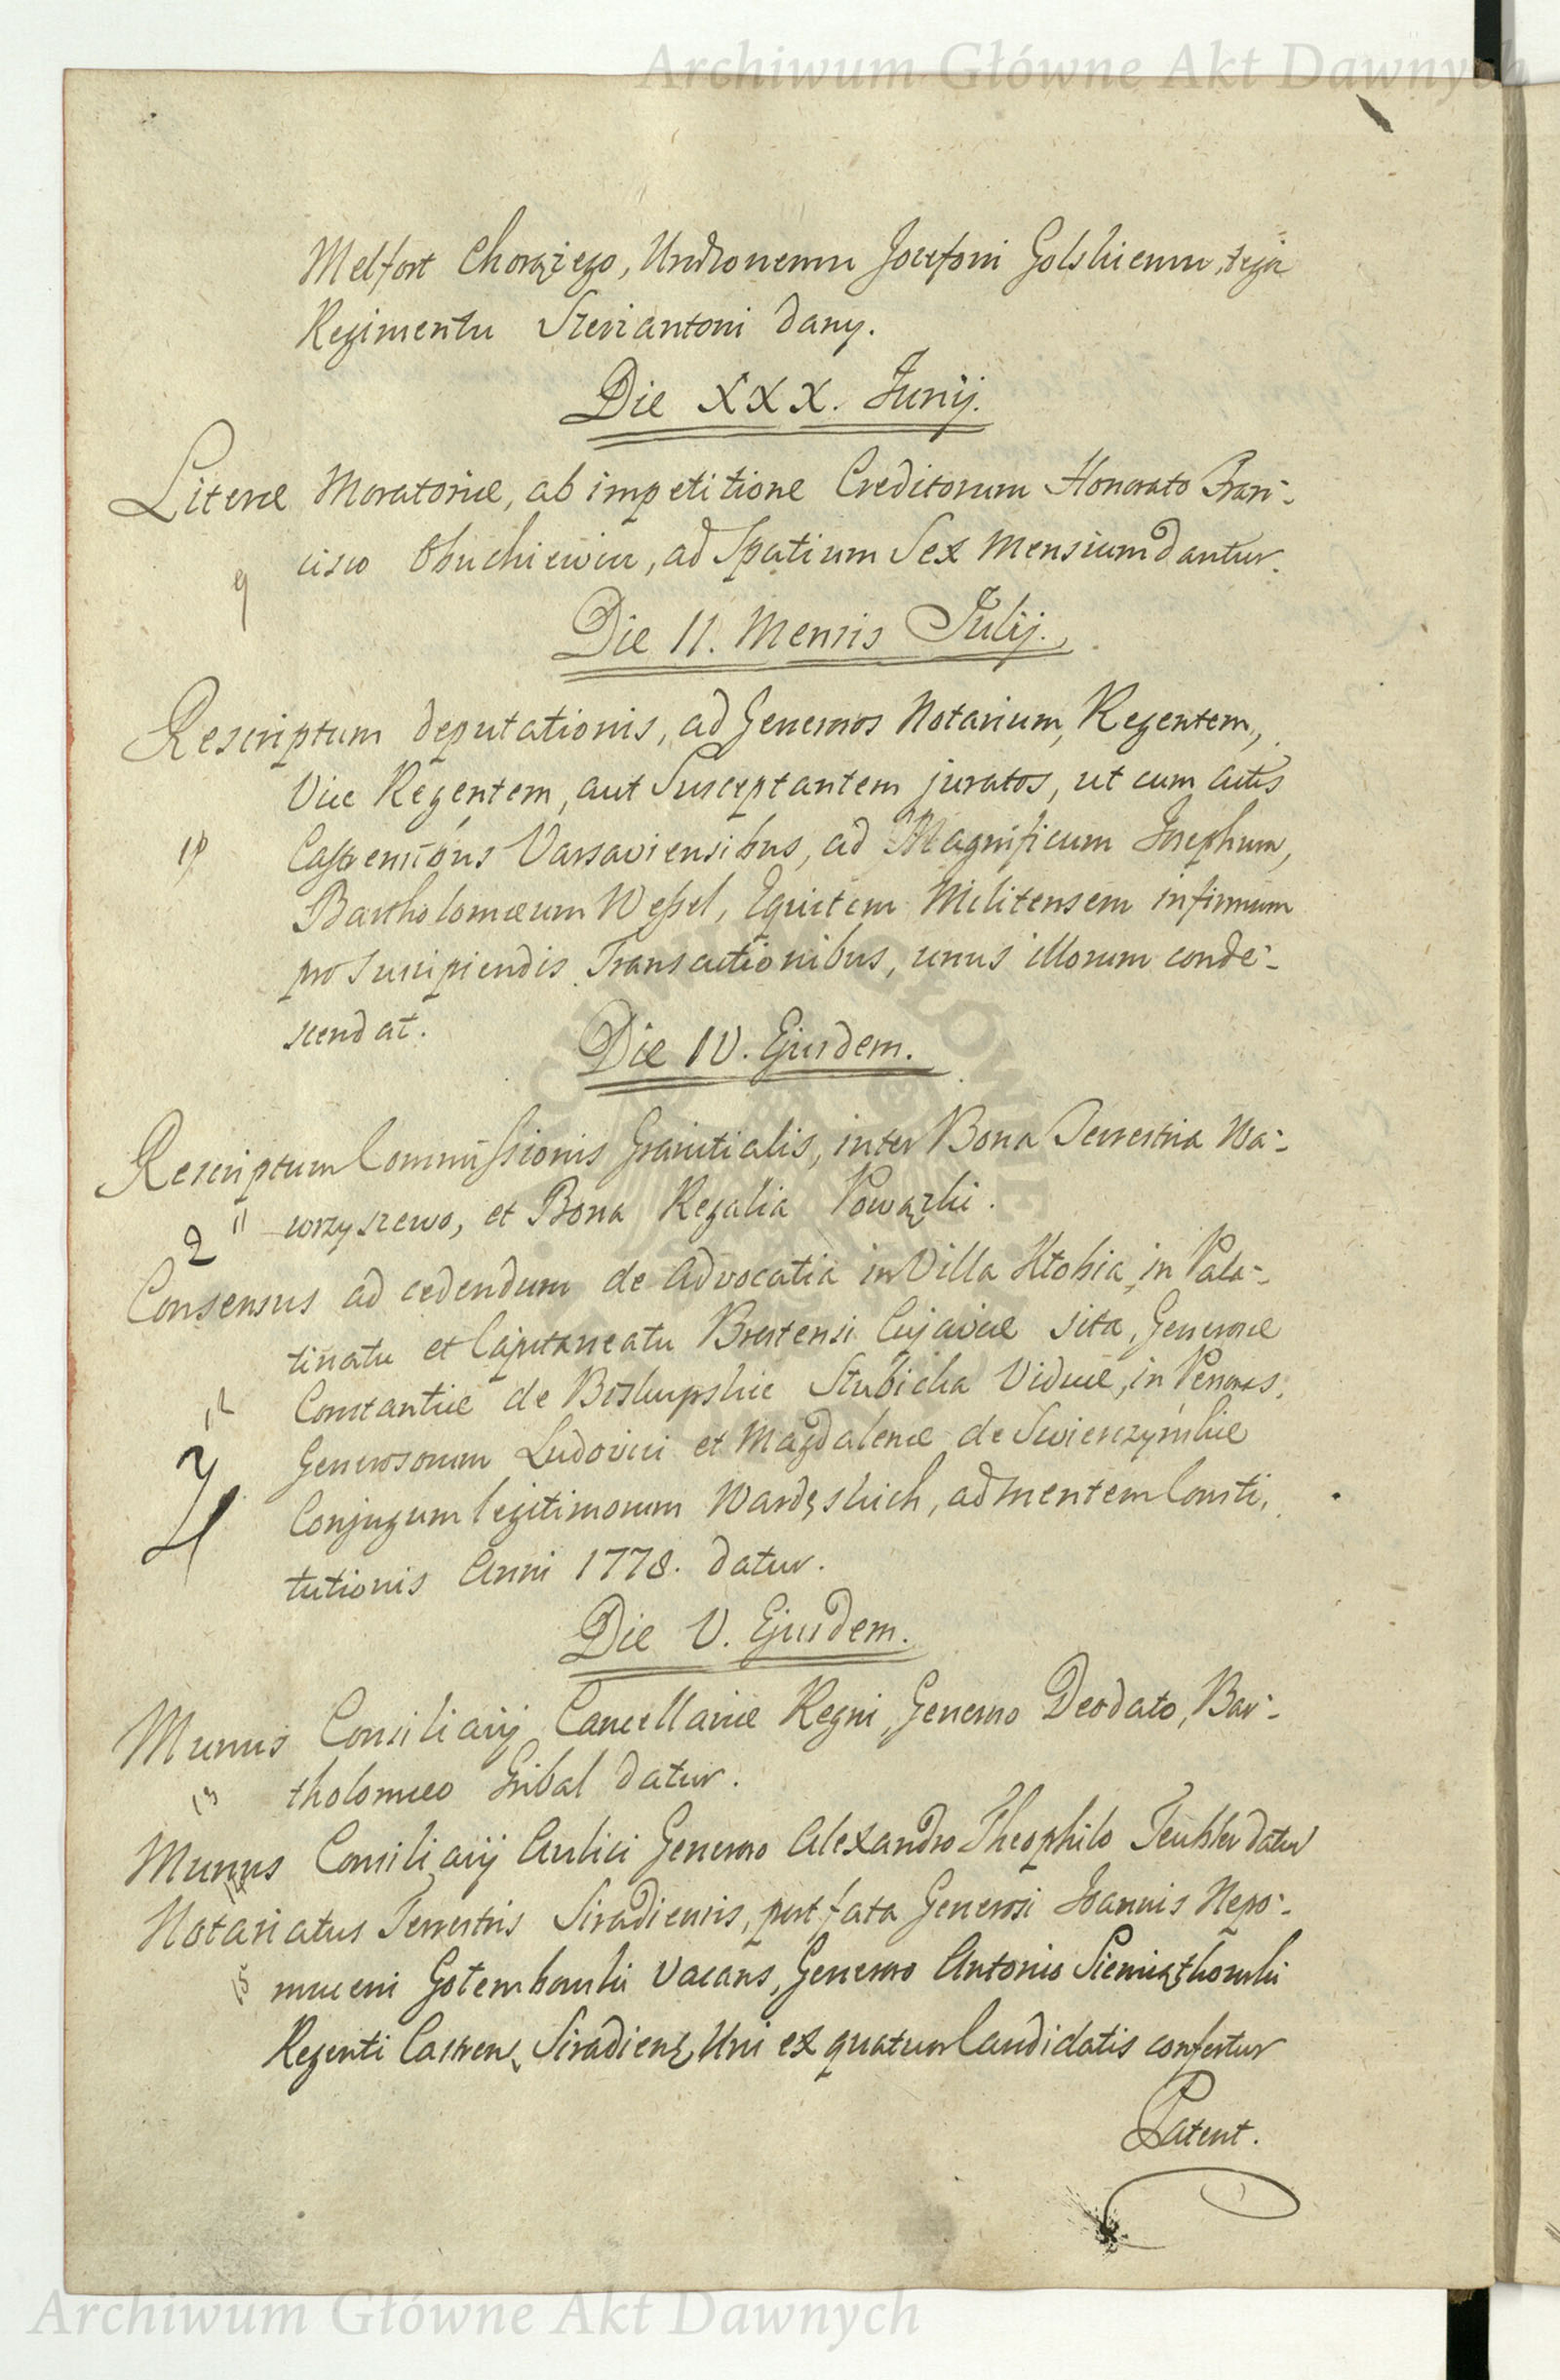 Archiwum Główne Akt Dawnych
Melfort Chorążego, Urodzonemu Jozefowi Golskiemu, tegoż
Regimentu Szerżantowi dany.
Die XXX. Junij.
Literæ Moratoriæ, ab impetitione Creditorum Honorato Fran-
9 cisco Obuchiewicz, ad Spatium Sex Mensium dantur.
Die II. Mensis Julij.
Rescriptum deputationis, ad Generosos Notarium, Regentem,
Vice Regentem, aut Susceptantem juratos, ut cum actis
10 Castrensibus Varsaviensibus, ad Magnificum Josephum,
Bartholomæum Wessel, Equitem Melitensem infirmum
pro suscipiendis Transactionibus, unus illorum conde-
scendat.
Die IV. Ejusdem.
Rescriptum Commissionis Granitialis, inter Bona Terrestria Wa-
11 wrzyszewo, et Bona Regalia Powązki.
2
Consensus ad cedendum de Advocatia in Villa Kłobia, in Pala-
tinatu et Capitaneatu Brestensi Cujaviæ sita, Generosæ
12 Constantiæ de Biskupskie Stubicka Viduæ, in Personas,
Generosorum Ludovici et Magdalenæ de Swierczynskie
Conjugum legitimorum Wardęskich, ad mentem Consti,
tutionis Anni 1778. datur.
Die V. Ejusdem.
Munus Consiliarij Cancellariæ Regni, Generoso Deodato, Bar-
13 tholomæo Gribal datur.
Munus Consiliarij Aulici Generoso Alexandro Theophilo Teubler datur
14
Notariatus Terrestris Siradiensis, post fata Generosi Joannis Nepo-
15 muceni Gotembowski vacans, Generoso Antonio Siemiątkowski
Regenti Castren, Siradien, Uni ex quatuor Candidatis confertur
Patent.
Archiwum Główne Akt Dawnych